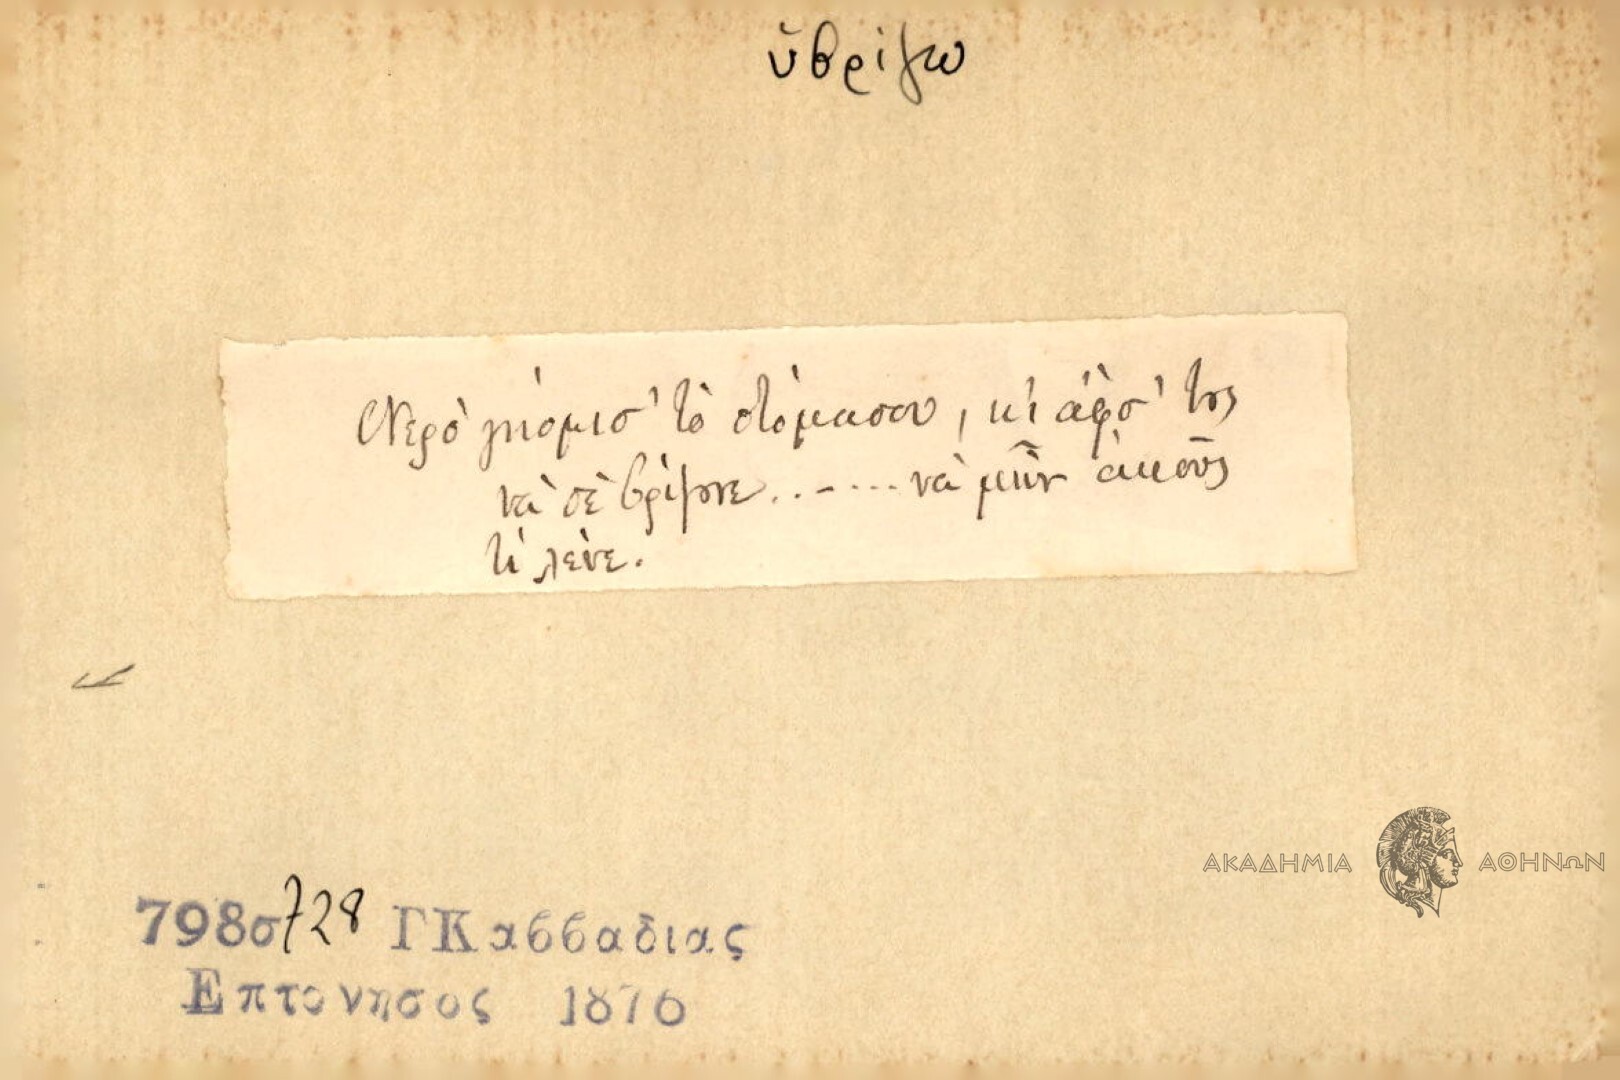 ὑβρίζω
Νερὸ γιόμισ' τὸ στόμασου, κι ἄφσ' τους
νὰ σὲ βρίζουνε....... νὰ μὴν ἀκοῦς
τί λένε.
798σ 728 ΓΚαββαδιας
Επτονησος 1876
ΑΚΑΔΗΜΙΑ ΑΘΗΝΩΝ